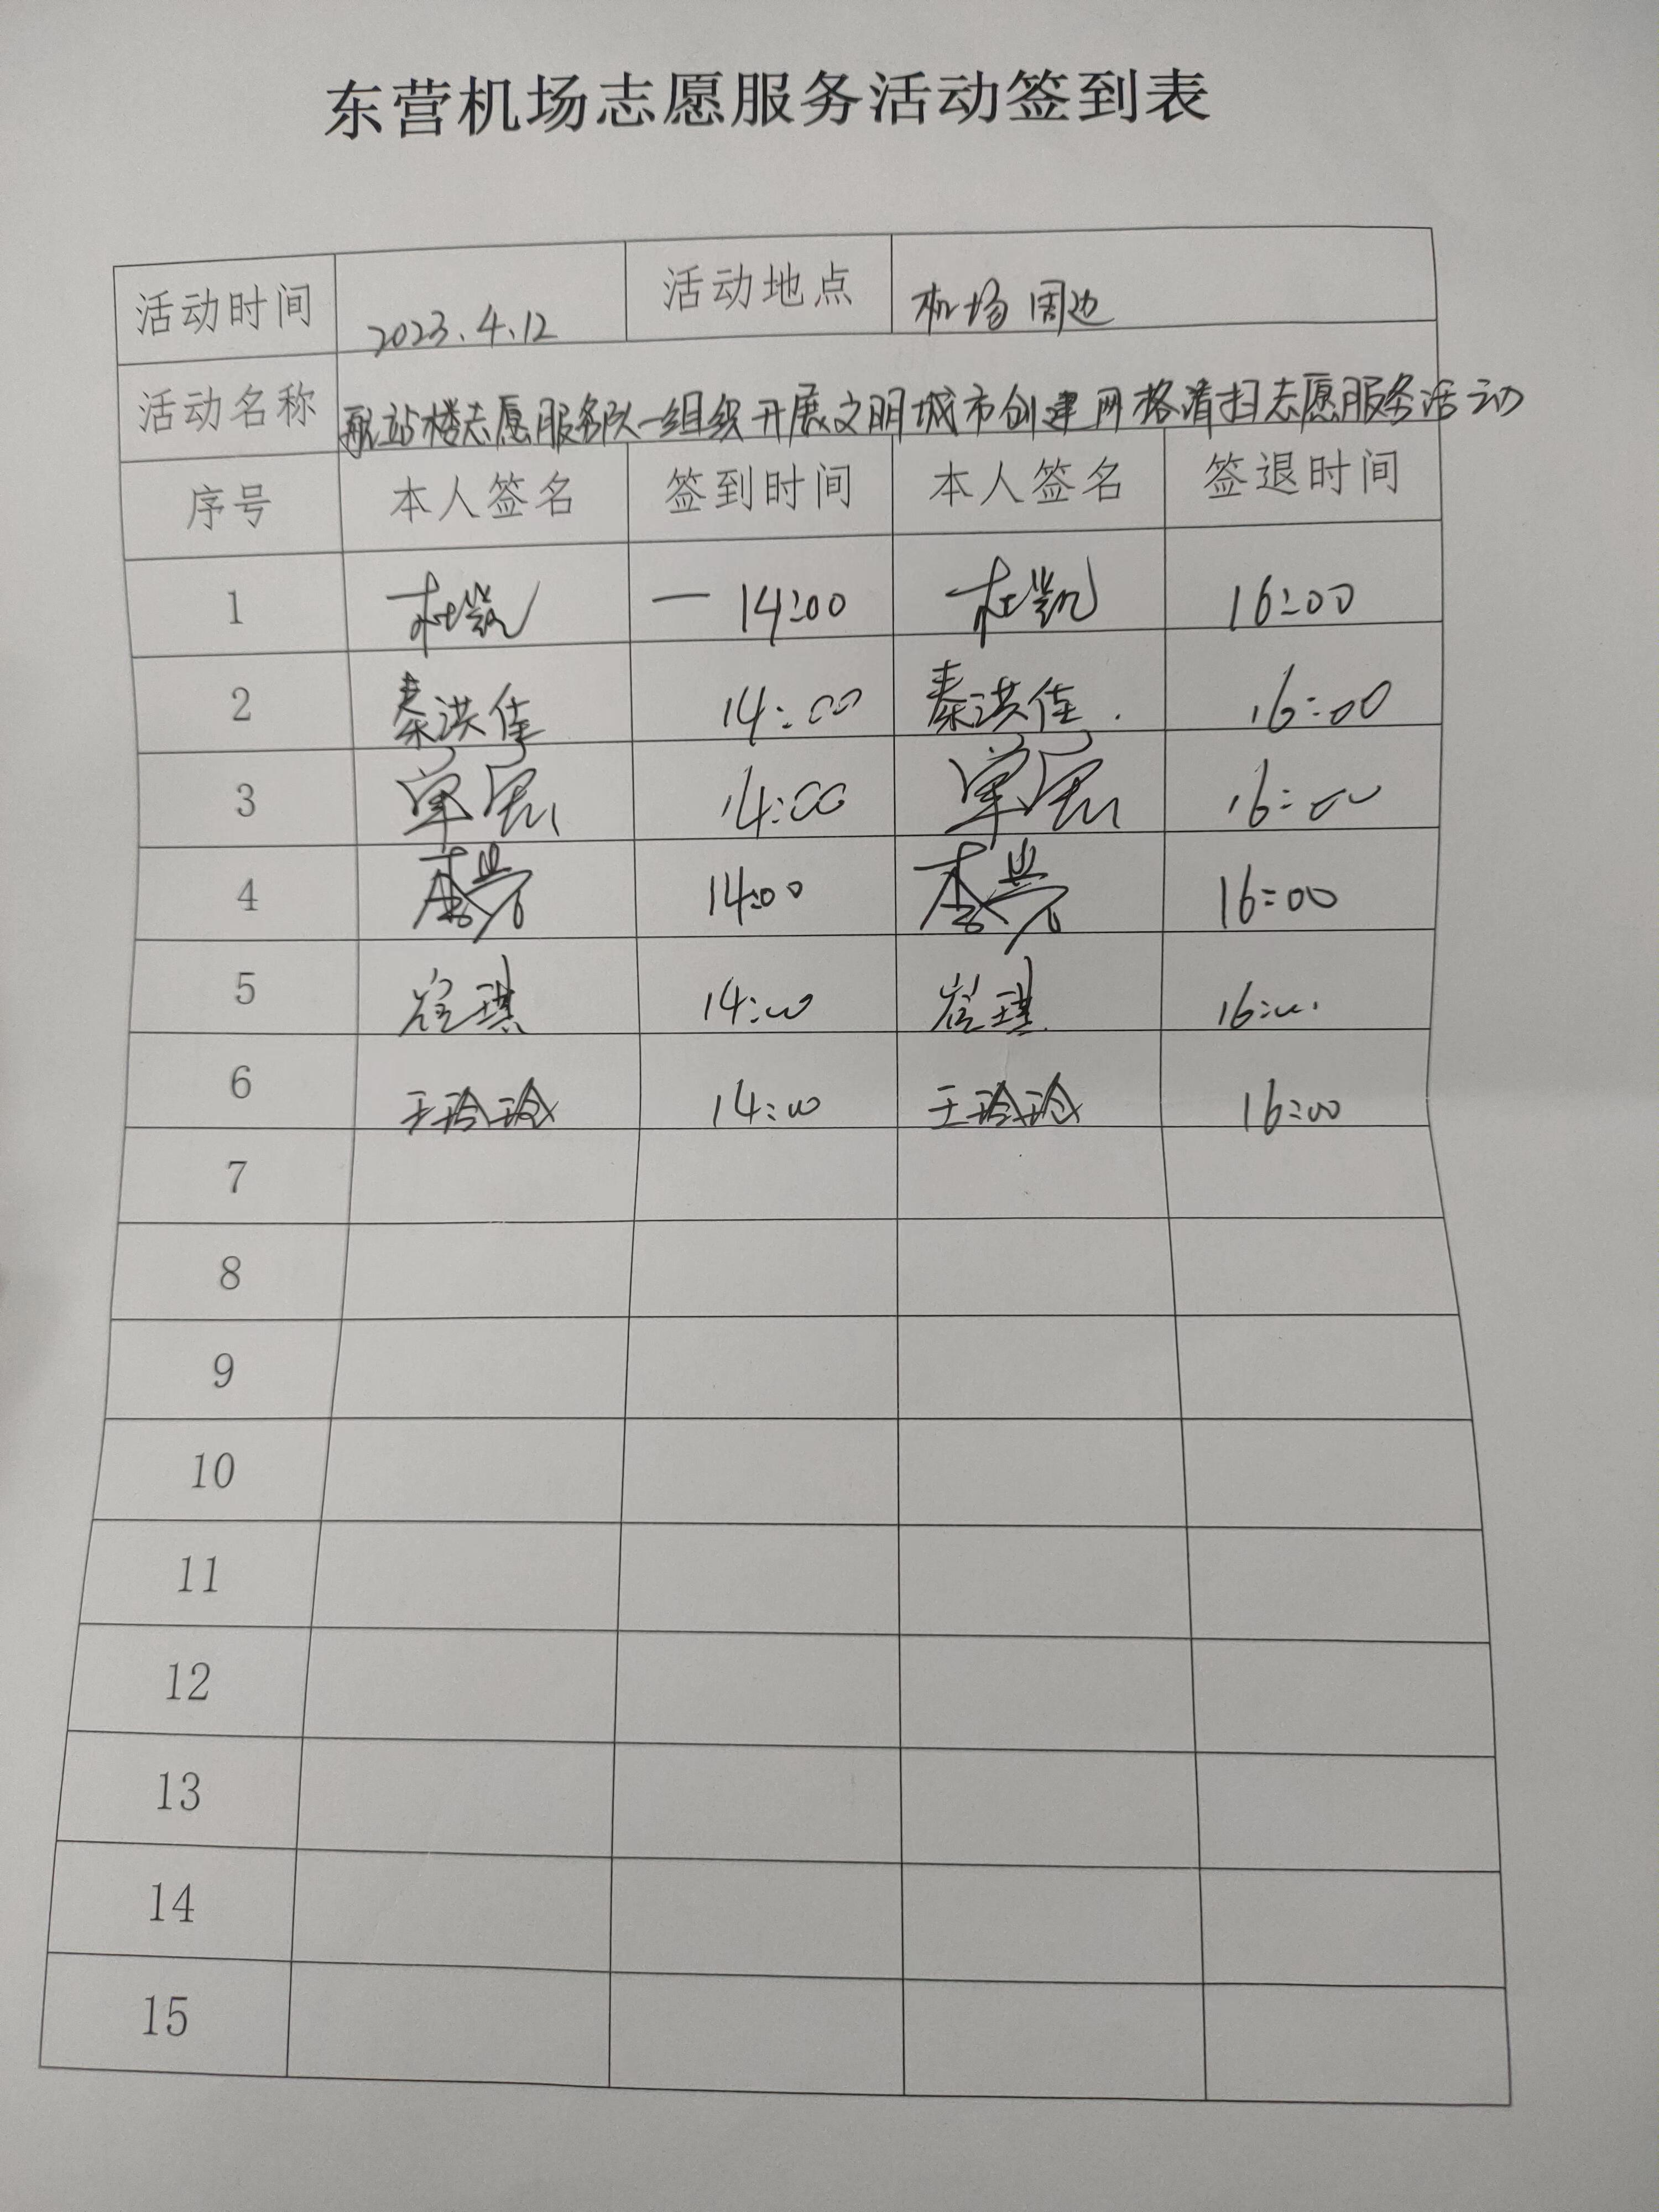 东营机场志愿服务活动签到表
活动时间 2023.4.12 活动地点 机场周边
活动名称 航站楼志愿服务队一组织开展文明城市创建网格清扫志愿服务活动
序号 本人签名 签到时间 本人签名 签退时间
1 杜凯 — 14:00 杜凯 16:00
2 秦洪佳 14:00 秦洪佳 16:00
3 14:00 16:00
4 14:00 16:00
5 崔琪 14:00 崔琪 16:00
6 王玲玲 14:00 王玲玲 16:00
7
8
9
10
11
12
13
14
15